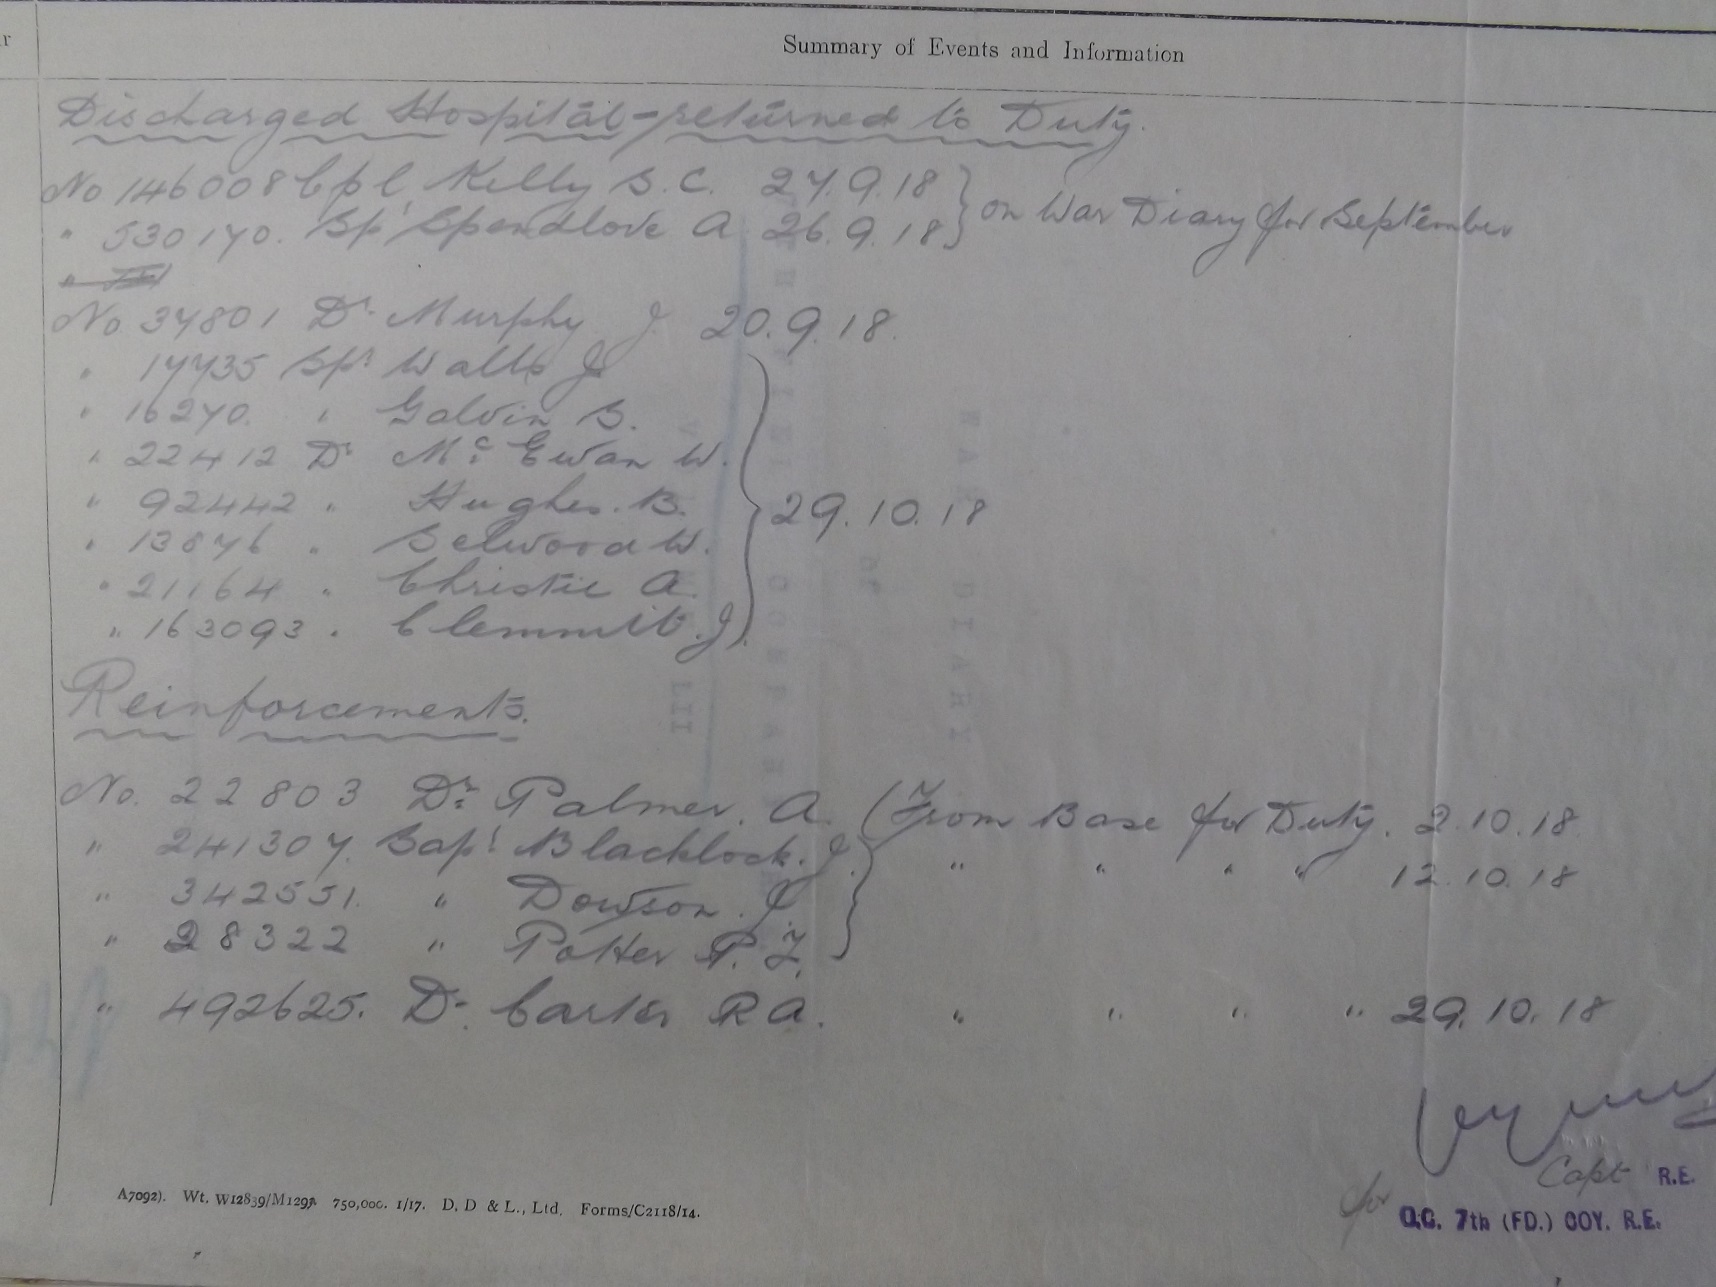 Summary of Events and Information
Discharged Hospital - returned to Duty.
No 146008 Cpl Kelly S. C. 27.9.18 } on War Diary for September
" 530170. Spr Spendlove A 26.9.18 }
No 37801 Dr. Murphy J. 20.9.18.
" 17735 Spr Walls J
" 16270. " Galvin S.
" 22412 Dr McEwan W.
" 92442 " Hughes. B. } 29.10.18
" 13876 " Selwood W.
" 21164 " Christie A.
" 163093 " Clemmit. J.
Reinforcements.
No. 22803 Dr. Palmer. A. (From Base for Duty. 2.10.18.
" 241307. Sapr Blacklock. J. } " " " " 12.10.18
" 342551. " Dowson. J.
" 28322 " Potter P. F.
" 492625. Dr. Carter R A. " " " " 29.10.18
Capt R.E.
for O.C. 7th (FD.) COY. R.E.
A7092). Wt. W12839/M1297. 750,000. 1/17. D. D & L., Ltd. Forms/C2118/14.